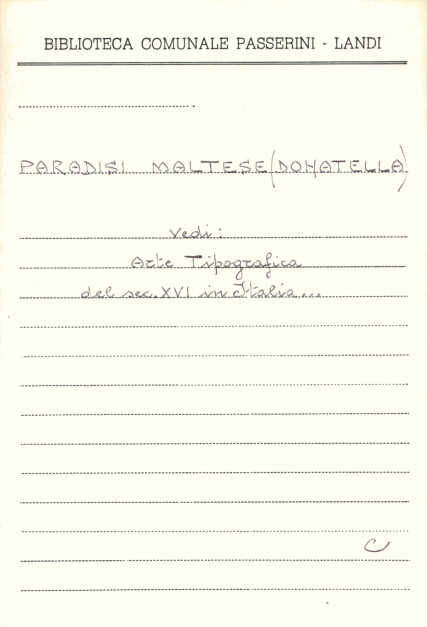 BIBLIOTECA COMUNALE PASSERINI - LANDI
PARADISI MALTESE (DONATELLA)
Vedi:
Arte Tipografica
del sec. XVI in Italia...
C